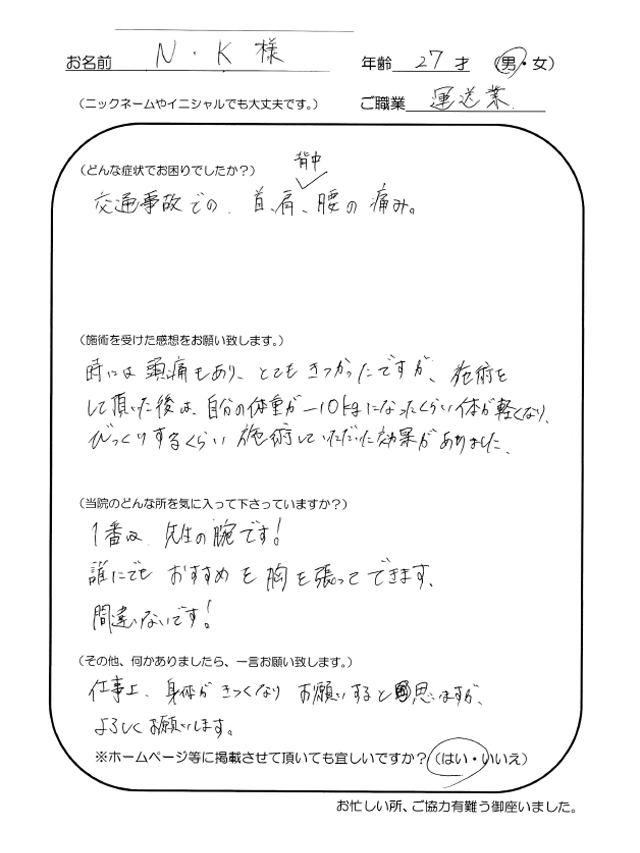 お名前 N・K 様 年齢 27 才 (男・女)
(ニックネームやイニシャルでも大丈夫です。) ご職業 運送業
(どんな症状でお困りでしたか?)
背中
交通事故での、首、肩、腰の痛み。
(施術を受けた感想をお願い致します。)
時には頭痛もあり、とてもきつかったですが、施術を
して頂いた後は、自分の体重が−10kgになったくらい体が軽くなり、
びっくりするくらい施術していただいた効果がありました、
(当院のどんな所を気に入って下さっていますか?)
1番は、先生の腕です!
誰にでもおすすめを胸を張ってできます、
間違いないです!
(その他、何かありましたら、一言お願い致します。)
仕事上、身体がきつくなりお願いすると思いますが、
よろしくお願いします。
※ホームページ等に掲載させて頂いても宜しいですか?(はい・いいえ)
お忙しい所、ご協力有難う御座いました。